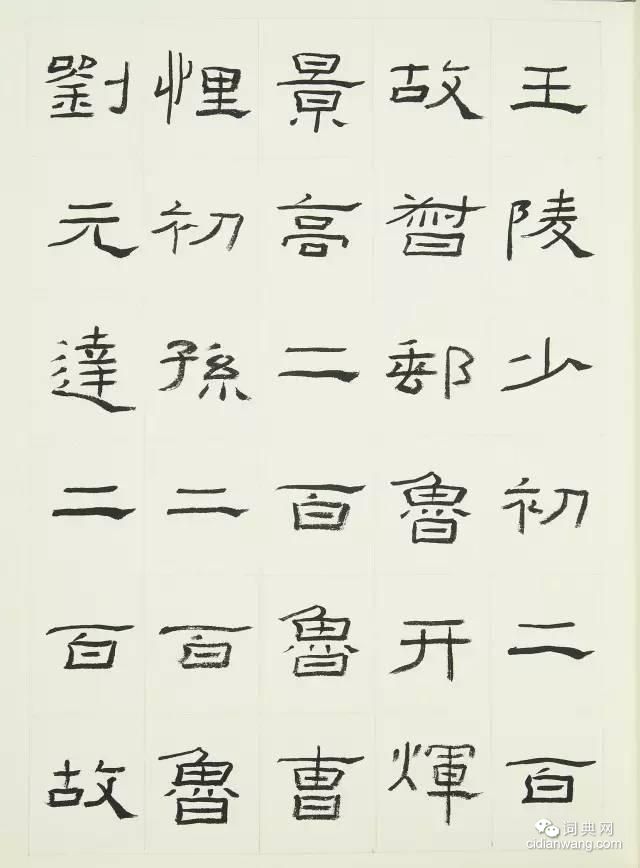 王陵少初二百
故督郵魯开煇
景高二百魯曹
悝初孫二百魯
劉元達二百故
词典网
cidianwang.com